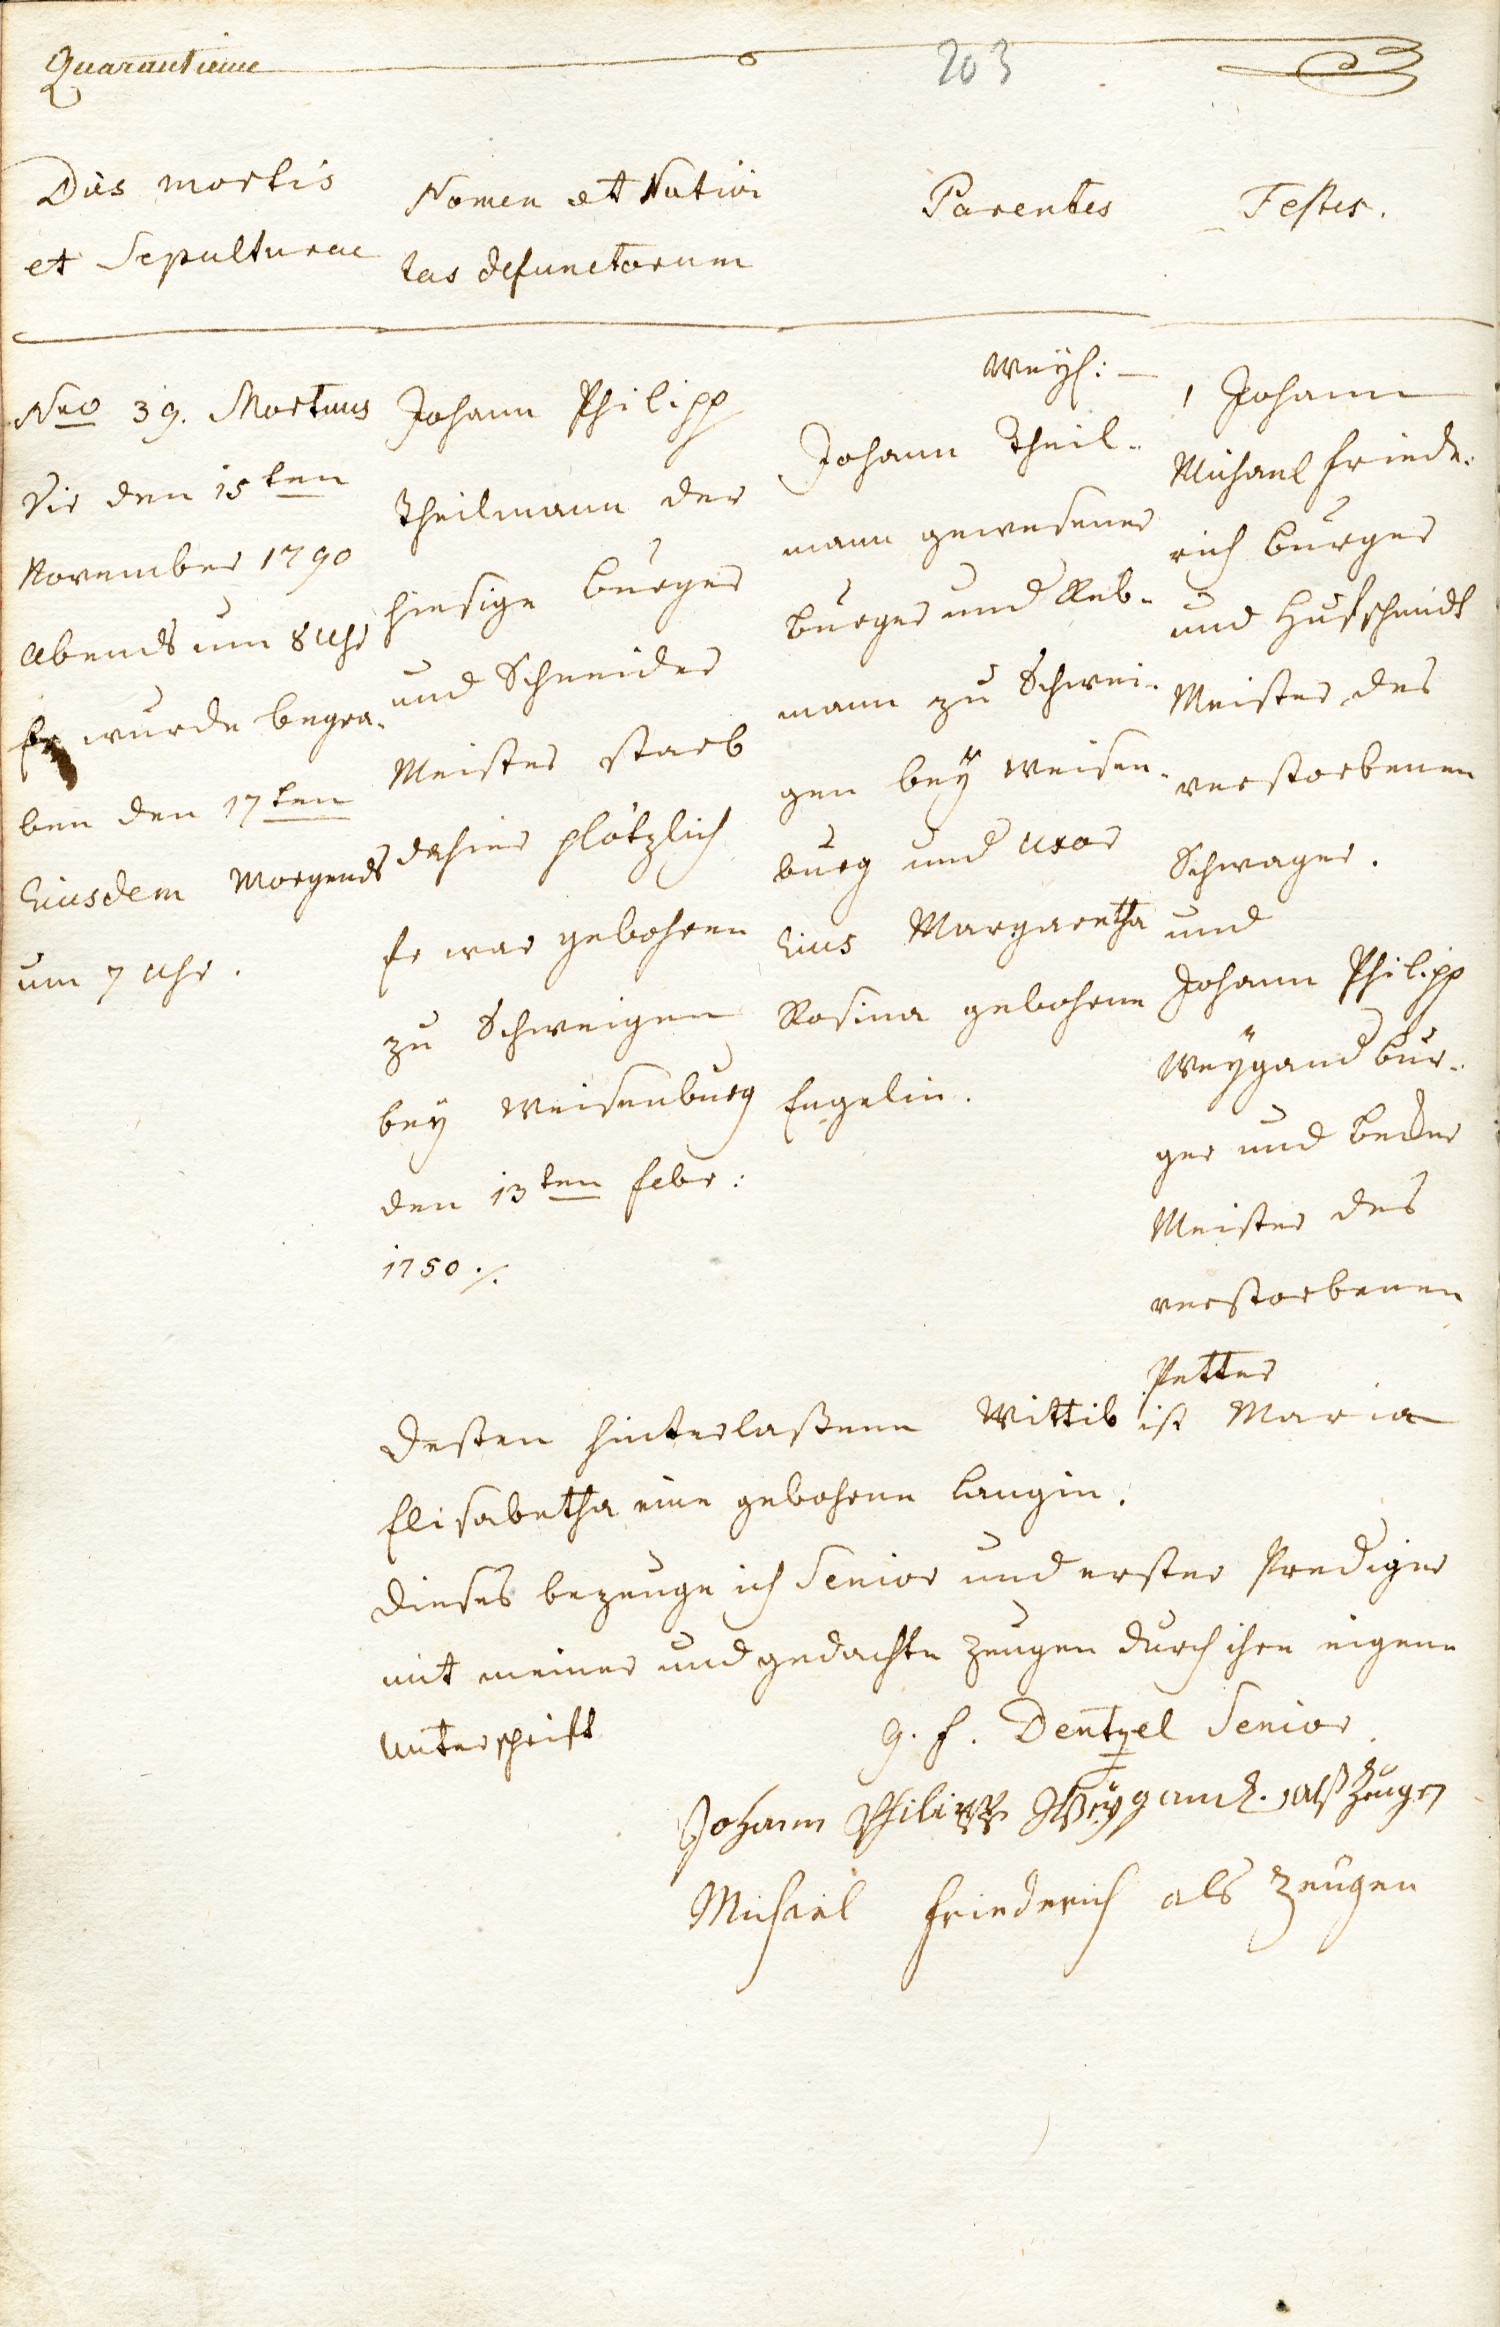 Quarantieme
203
Dies mortis
et Sepulturae
Nomen et Nativi
tas defunctorum
Parentes
Testes.
Nro 39. Mortuus
Vir den 15ten
November 1790
Abends um 8 Uhr
Er wurde begra-
ben den 17ten
Eiusdem Morgends
um 7 Uhr.
Johann Philipp
Theilmann der
hiesige Burger
und Schneider
Meister starb
dahier plötzlich
Er war gebohren
zu Schweigen
bey Weisenburg
den 13ten Febr:
1750./.
Weyl:
Johann Theil-
mann gewesener
Burger und Reb-
mann zu Schwei-
gen beÿ Weisen-
burg und uxor
Eius Margaretha
Rosina gebohrne
Engelin.
1 Johann
Michael Friede-
rich Burger
und Hufschmidt
Meister des
verstorbenen
Schwager.
und
Johann Philipp
Weÿgand Bur-
ger und Becker
Meister des
verstorbenen
Petter
Desten hinterlaßene Wittib ist Maria
Elisabetha eine gebohrne Langin.
Dieses bezeuge ich Senior und erster Prediger
mit meiner und gedachte Zeugen durch ihre eigene
Unterschrift
G. F. Dentzel Senior
Johann Philipp Weÿgand. alß Zeugen
Michael Friederich als Zeugen